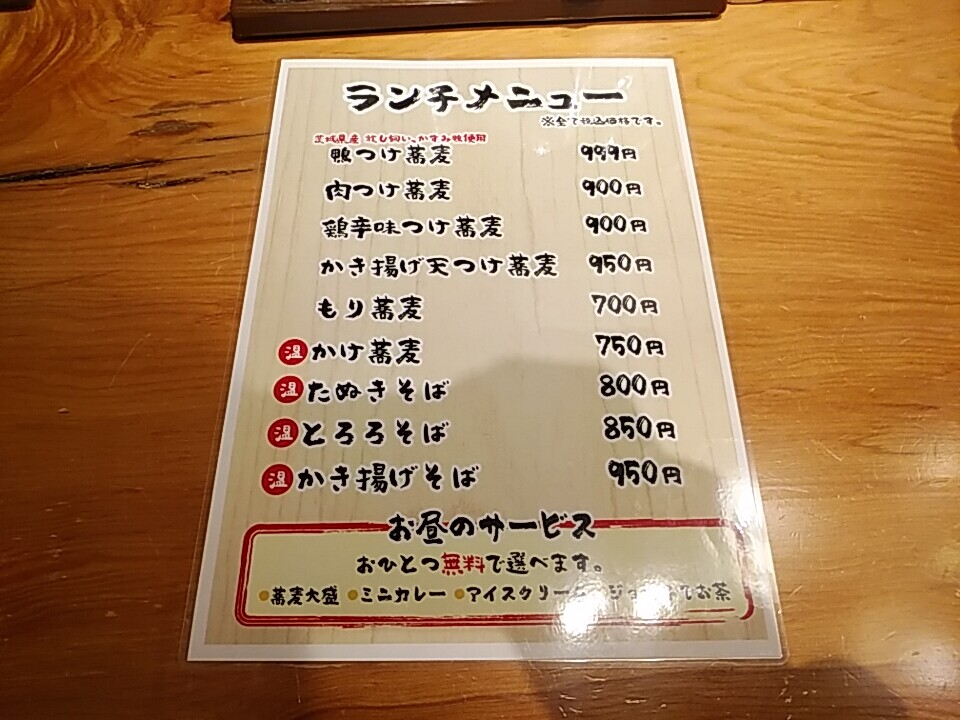 ランチメニュー
※全て税込価格です。
茨城県産 放し飼い、かすみ鴨使用
鴨つけ蕎麦 999円
肉つけ蕎麦 900円
鶏辛味つけ蕎麦 900円
かき揚げ天つけ蕎麦 950円
もり蕎麦 700円
温 かけ蕎麦 750円
温 たぬきそば 800円
温 とろろそば 850円
温 かき揚げそば 950円
お昼のサービス
おひとつ無料で選べます。
●蕎麦大盛 ●ミニカレー ●アイスクリーム お茶